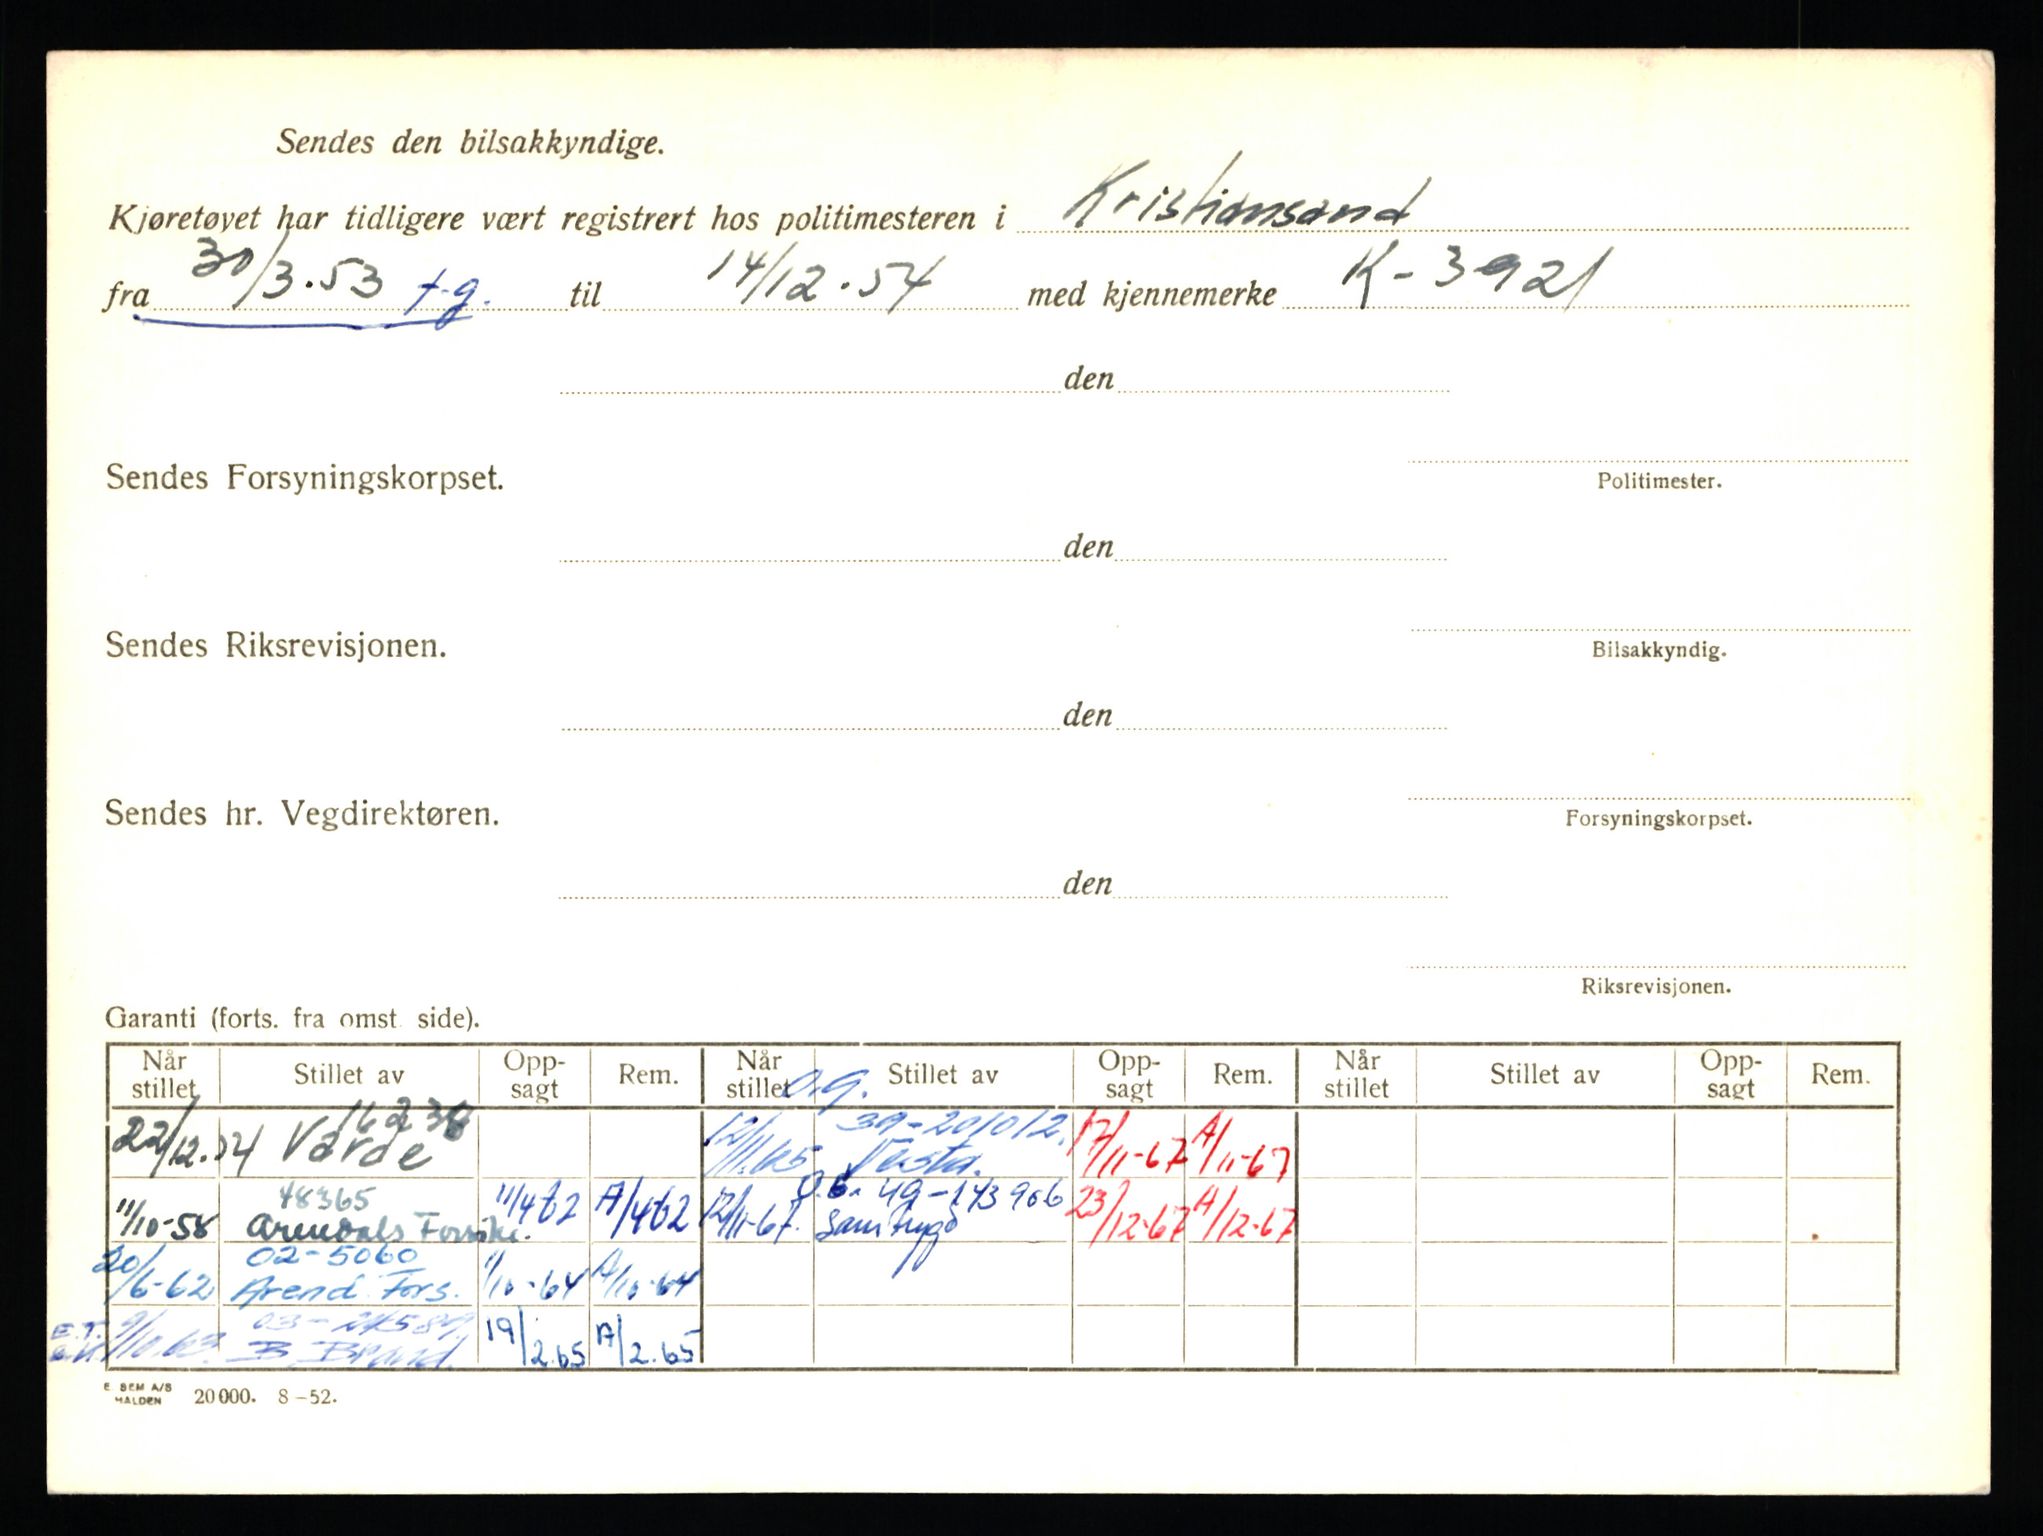 Sendes den bilsakkyndige.
Kjøretøyet har tidligere vært registrert hos politimesteren i Kristiansand
fra 30/3.53 t.g. til 14/12.54 med kjennemerke K-3921
den
Sendes Forsyningskorpset.
Politimester.
den
Sendes Riksrevisjonen.
Bilsakkyndig.
den
Sendes hr. Vegdirektøren.
Forsyningskorpset.
den
Riksrevisjonen.
Garanti (forts. fra omst. side).
Når stillet Stillet av Opp-sagt Rem. Når stillet Stillet av Opp-sagt Rem. Når stillet Stillet av Opp-sagt Rem.
o.g.
16238 39-201012.
22/12.54 Varde 12/11.65 Vesta. 17/11-67 A/11-67
48365 49-143906
11/10-58 Arendals Forsikr. 11/4 62 A/4 62 12/11-67. Samtrygd 23/12-67 A/12-67
02-5060
20/6-62 Arend. Fors. 1/10-64 A/10-64
E.T.
B. Brand. 19/2.65 A/2.65
E. SEM A/S
HALDEN 20000. 8-52.